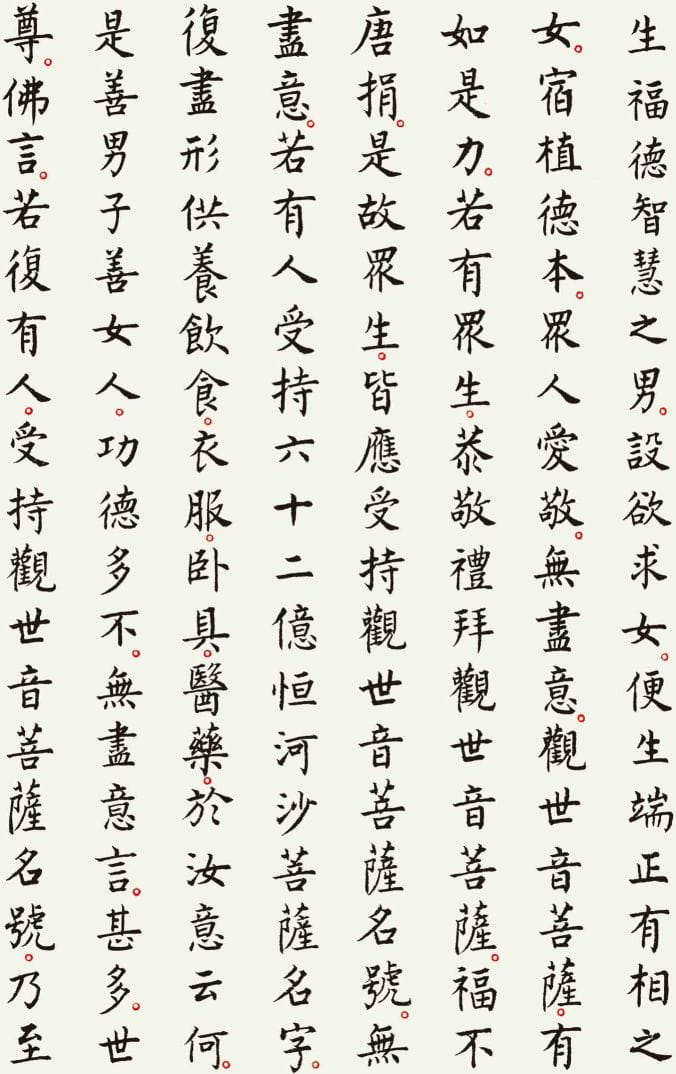 生福德智慧之男。設欲求女。便生端正有相之
女。宿植德本。眾人愛敬。無盡意。觀世音菩薩。有
如是力。若有眾生。恭敬禮拜觀世音菩薩。福不
唐捐。是故眾生。皆應受持觀世音菩薩名號。無
盡意。若有人受持六十二億恒河沙菩薩名字。
復盡形供養飲食。衣服。卧具。醫藥。於汝意云何。
是善男子善女人。功德多不。無盡意言。甚多。世
尊。佛言。若復有人。受持觀世音菩薩名號。乃至